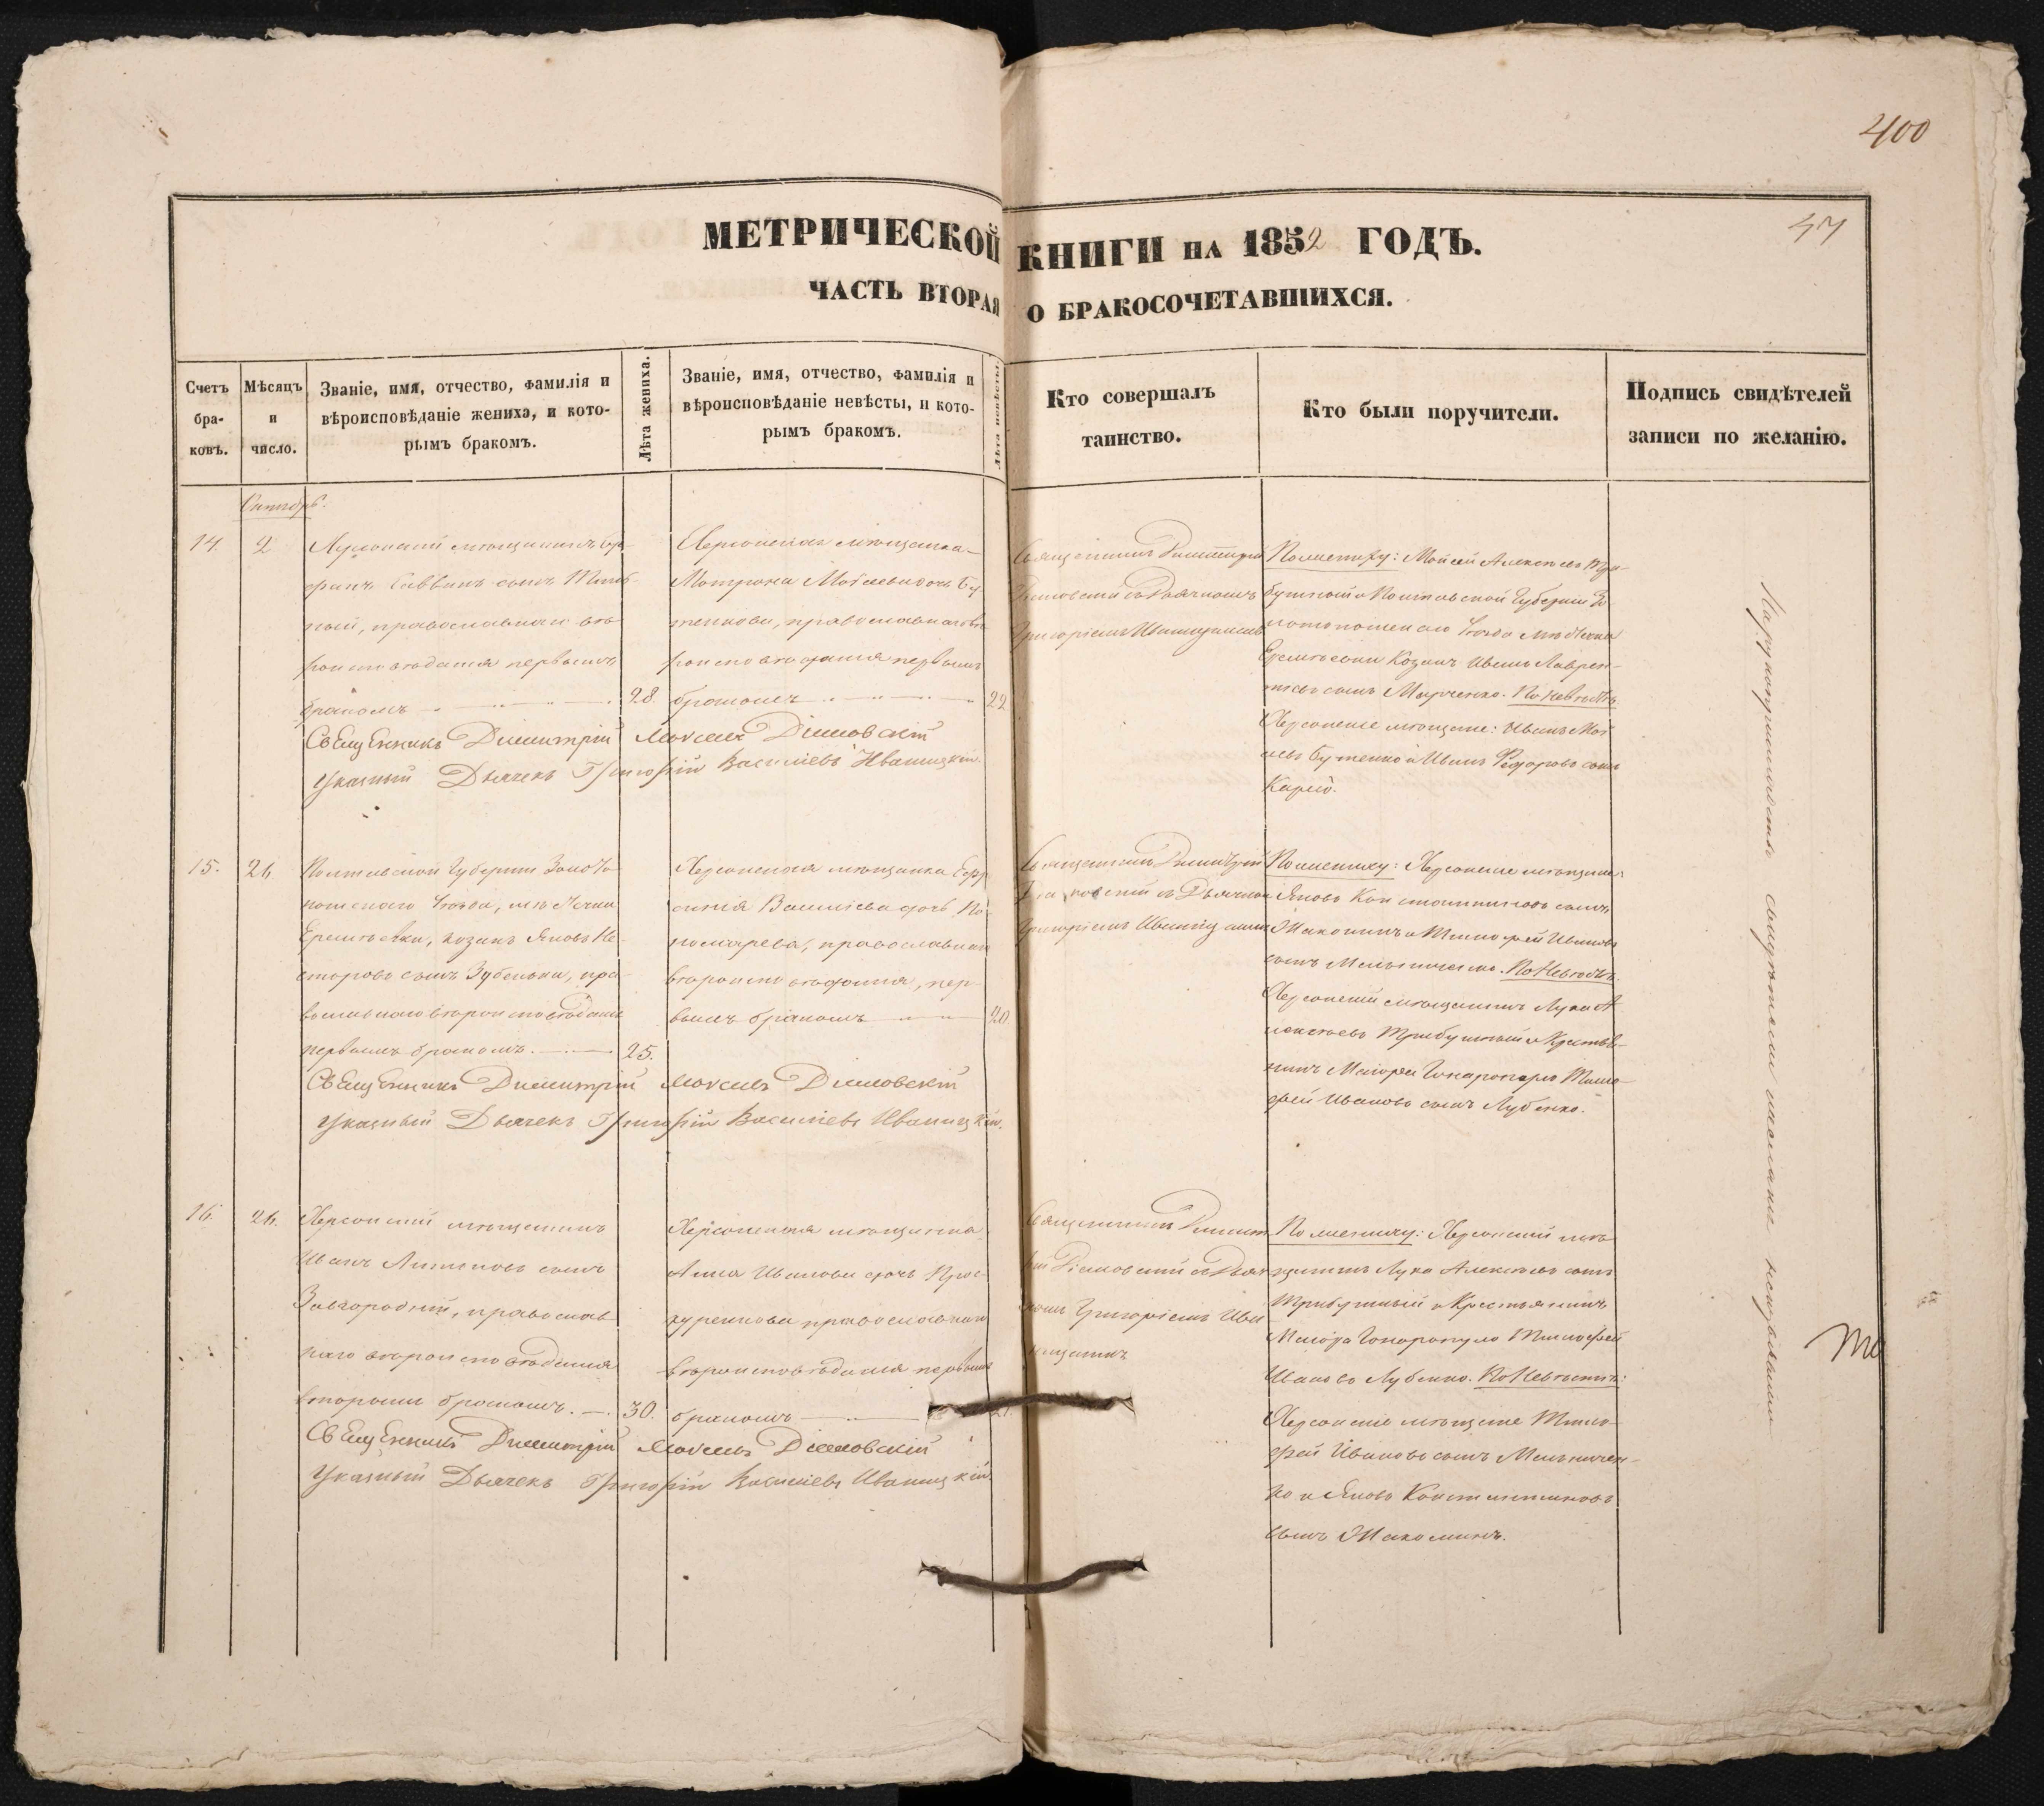 400
47
МЕТРИЧЕСКОЙ КНИГИ НА 1852 ГОДЪ.
ЧАСТЬ ВТОРАЯ О БРАКОСОЧЕТАВШИХСЯ.
Счетъ бра- ковъ.
Мѣсяцъ и число.
Званіе, имя, отчество, фамилія и
вѣроисповѣданіе жениха, и кото-
рымъ бракомъ.
Лѣта жениха.
Званіе, имя, отчество, фамилія и
вѣроисповѣданіе невѣсты, и кото-
рымъ бракомъ.
Лѣта невѣсты.
Кто совершалъ
таинство.
Кто были поручители.
Подпись свидѣтелей
записи по желанію.
14.
2
Саввинъ сынъ
православнаго вѣ-
роисповѣданія первымъ
бракомъ
28.
Херсонская мѣщанка
Матрона Моісеева дочь Бу-
тенкова, православнаго вѣ-
роисповѣданія первымъ
бракомъ
22
Священникъ Димитрій
Діаковскій съ Дьячкомъ
Григоріемъ Иваницкимъ
По жениху: Моисей Алексѣевъ Три-
бушный и Полтавской Губерніи Зо-
лотоношскаго Уѣзда мѣстечка
Козакъ Иванъ Лаврен-
тіевъ сынъ Марченко. По невѣстѣ
Херсонскіе мѣщане: Иванъ Мої
сеевъ Бутенко и Иванъ Федоровъ сынъ
Карій.
Священникъ Димитрій Діаковскій
Указный Дьячекъ Григорій Василіевъ Иваницкій.
15.
26
Полтавской Губерніи Золото-
ношскаго Уѣзда, мѣстечка
козакъ Яковъ Не-
сторовъ сынъ Зубенько, пра-
вославнаго вѣроисповѣданія
первымъ бракомъ.
25.
Херсонская мѣщанка Евф
синія Василіева дочь По-
номарева, православнаго
вѣроисповѣданія, пер-
вымъ бракомъ
20
Священникъ Димитрій
Діаковскій съ Дьячкомъ
Григоріемъ Иваницкимъ
По жениху: Херсонскіе мѣщане:
Яковъ Константиновъ сынъ
Жакоминъ и Тимофей Ивановъ
сынъ Мельниченко. По невѣстѣ:
Херсонскій мѣщанинъ Лука А
лексѣевъ Трибушный и Крестья-
нинъ Маіора Тимо-
фей Ивановъ сынъ Лубенко.
Священникъ Димитрій Діаковскій
Указный Дьячекъ Григорій Василіевъ Иваницкій.
16.
26.
Херсонскій мѣщанинъ
Иванъ Антоновъ сынъ
Завгородній, православ
наго вѣроисповѣданія
вторымъ бракомъ.
30.
Херсонская мѣщанка
Анна Иванова дочь Прос-
куренкова православнаго
вѣроисповѣданія первымъ
бракомъ
Священникъ Димит
рій Діаковскій съ Дьяч
комъ Григоріемъ Ива
ницкимъ
По жениху: Херсонскій мѣ
щанинъ Лука Алексѣевъ сынъ
Трибушный и Крестьянинъ
Маіора Тимофей
Ивановъ Лубенко. По невѣстѣ:
Херсонскіе мѣщане Тимо-
фей Ивановъ сынъ Мельничен-
ко и Яковъ Константиновъ
сынъ Жакоминъ.
Священникъ Димитрій Діаковскій
Указный Дьячекъ Григорій Василіевъ Иваницкій